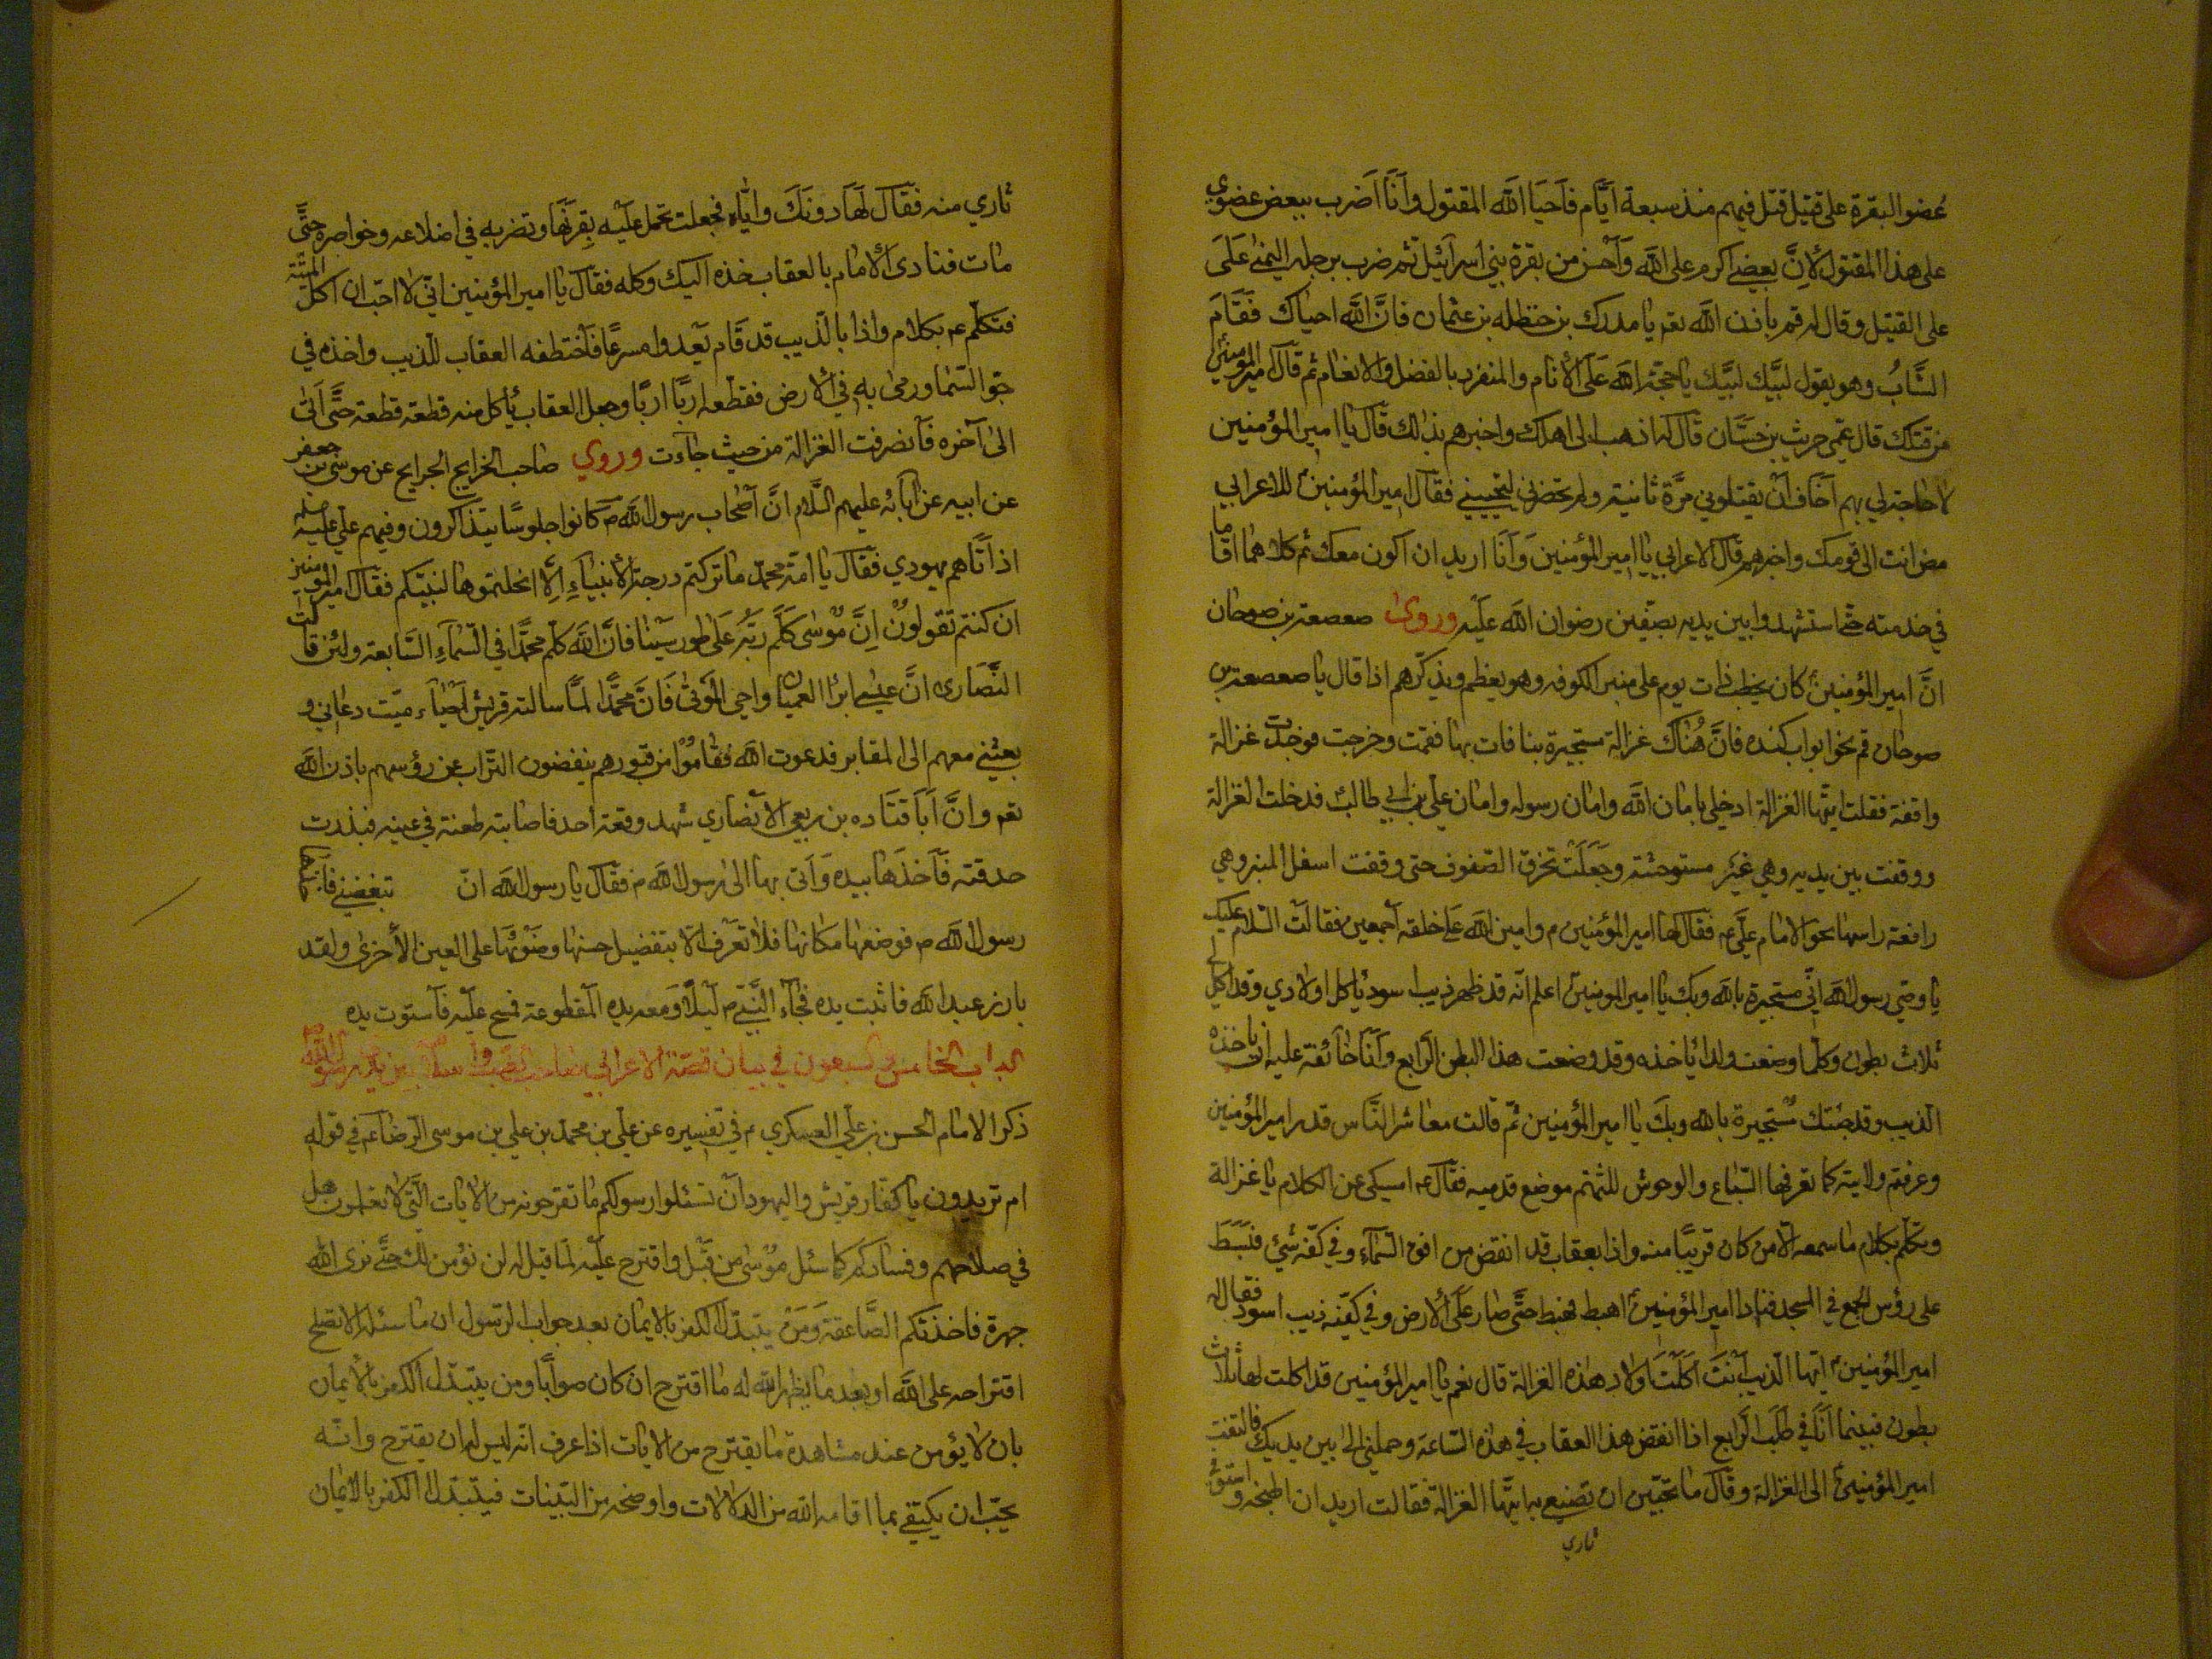 عضو البقرة على قتيل قتل فيهم منذ سبعة ايام فاحيا الله المقتول وانا اضرب ببعض عضوي
على هذا المقتول لان بعضي اكرم على الله واحسن من بقرة بني اسرائيل ثم ضرب برجله اليمنى على
على القتيل وقال له قم باذن الله نعم يا مدرك بن حنظله بن عثمان فان الله احياك فقام
الشاب وهو يقول لبيك لبيك يا حجة الله على الانام والمنفرد بالفضل والانعام ثم قال امير المومنين
من قتلك قال عمي حريث بن حسان قال له اذهب الى اهلك واخبرهم بذلك قال يا امير المؤمنين
لا حاجة لي بهم اخاف ان يقتلوني مرة ثانية ولم تحضرني لتحييني فقال امير المؤمنين للاعرابي
مض انت الى قومك واخبرهم قال الاعرابي يا امير المؤمنين وانا اريد ان اكون معك ثم كلاهما اقاما
في خدمته حتى استشهدوا بين يديه بصفين رضوان الله عليه وروى صعصعة بن صوحان
ان امير المؤمنين كان يخطب ذات يوم على منبر الكوفه وهو يعظهم ويذكرهم اذا قال يا صعصعة بن
صوحان قم نحو ابواب كنده فان هناك غزالة مستجيرة بنا فات بها فقمت وخرجت فوجدت غزالة
واقفة فقلت ايتها الغزالة ادخلي بامان الله وامان رسوله وامان علي بن ابي طالب فدخلت الغزالة
ووقفت بين يديه وهي غير مستوحشة وجعلت تخرق الصفوف حتى وقفت اسفل المنبر وهي
رافعة راسها نحو الامام علي عم فقال لها امير المؤمنين م وامين الله على خلقه اجمعين فقالت السلام عليك
يا وصي رسول الله اني مستجيرة بالله وبك يا امير المومنين اعلم انه قد ظهر ذيب اسود ياكل اولادي وقد اكل لي
ثلاث بطون وكلما وضعت ولدا ياخذه وقد وضعت هذا البطن الرابع وانا خائفة عليه ان ياخذه
الذيب وقد جئتك مستجيرة بالله وبك يا امير المؤمنين ثم قالت معاشر الناس قدر امير المؤمنين
وعرفتم ولايته كما تعرفها السباع والوحوش للثمتم موضع قدميه فقال عم اسيكى عن الكلام يا غزالة
وتكلم بكلام ما سمعه الا من كان قريبا منه واذا بعقاب قد انقض من افق السماء وفي كفه شئ فنبسط
على رؤس الجمع في المسجد فنادا امير المؤمنين اهبط فهبط حتى صار على الارض وفي كفيه ذيب اسود فقال له
امير المؤمنين ايها الذيب انت اكلت اولاد هذه الغزالة قال نعم يا امير المؤمنين قد اكلت لها ثلاث
بطون فبينما انا في طلب الرابع اذا انقض هذا العقاب في هذه الساعة وحملني الى بين يديك فالتفت
امير المؤمنين الى الغزالة وقال ما تحبين ان تصنيع به ايتها الغزالة فقالت اريد ان اطبخه و استوفي
ثاري
ثاري منه فقال لها دونك واياه فجعلت تحمل عليه بقرنها وتضربه في اضلاعه وخواصره حتى
مات فنادى الامام بالعقاب خذه اليك وكله فقال يا امير المؤمنين اني لا احب ان اكل الميتة
فتكلم عم بكلام واذا بالذيب قد قام يعدوا مسرعا فاختطفه العقاب للذيب واخذه في
جو السما ورمى به في الارض فقطعه اربا اربا وجعل العقاب ياكل منه قطعة قطعة حتى اتى
الى آخره فانصرفت الغزالة من حيث جاءت وروي صاحب الخرايج الجرايح عن موسى بن جعفر
عن ابيه عن ابائه عليهم السلام ان اصحاب رسول الله ص كانوا جلوسا يتذاكرون وفيهم علي عليه سلم
اذ اتاهم يهودي فقال يا امة محمد ما تركتم درجة الانبياء الا انحلتموها لنبيكم فقال امير المومنين
ان كنتم تقولون ان موسى كلم ربه على طور سينا فان الله كلم محمدا في السماء السابعة ولئن قالت
النصارى ان عيسى ابرا العميان واحي الموتى فان محمدا لما سالته قريش احياء ميت دعاني و
بعثني معهم الى المقابر فدعوت الله فقاموا من قبورهم ينفضون التراب عن رؤسهم باذن الله
نعم وان ابا قتاده بن ربعي الانصاري شهد وقعة احد فاصابته طعنة في عينه فبذرت
حدقته فاخذها بيده واتى بها الى رسول الله ص فقال يا رسول الله ان تبغضني فاخذها
رسول الله ص فوضعها مكانها فلا تعرف الا بتفضيل حسنها وضوئها على العين الاخرى ولقد
بارز عبد الله فانبت يده فجاء النبي ص ليلا ومعه يده المقطوعة فمسح عليه فاستوت يده
الباب الخامس والسبعون في بيان قصة الاعرابي صاحب الضب واسلا بين يدي رسول الله
ذكر الامام الحسن بن علي العسكري م في تفسيره عن علي بن محمد بن علي بن موسى الرضا عم في قوله
ام تريدون يا كفار قريش واليهود ان تسئلوا رسولكم ما تقرحونه من الايات التي لا تعلمون هل
في صلاحهم وفسادكم كما سئل موسى من قبل واقترح عليه لما قيل له لن نؤمن لك حتى نرى الله
جهرة فاخذتكم الصاعقة ومن يتبدل الكفر بالايمان بعد جواب الرسول ان ما سئله لا يصلح
اقتراحه على الله او بعد ما يظهر الله له ما اقترح ان كان صوابا ومن يتبدل الكفر بالايمان
بان لا يؤمن عند مشاهدة ما يقترح من الايات اذا عرف انه ليس له ان يقترح وانه
يجب ان يكتفي بما اقامه الله من الدلالات واوضحه من البينات فيتبدل الكفر بالايمان